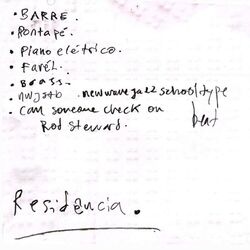 • BARRE.
• Pontapé.
• Piano elétrico.
• Farél.
• Brass.
• nwjstb .newwavejazzschooltype beat
• Can someone check on
Rod Steward.
Residência.